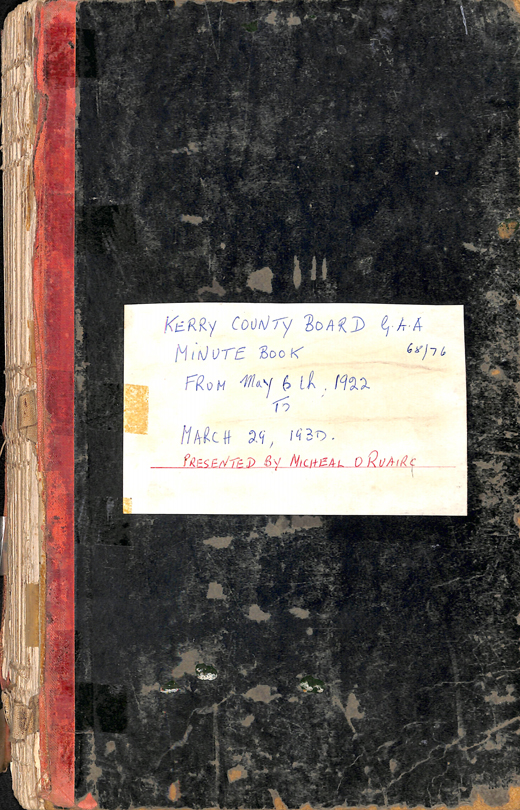 KERRY COUNTY BOARD G.A.A
MINUTE BOOK 68/76
FROM May 6th, 1922
TO
MARCH 29, 1930.
PRESENTED BY MICHEAL O RUAIRC